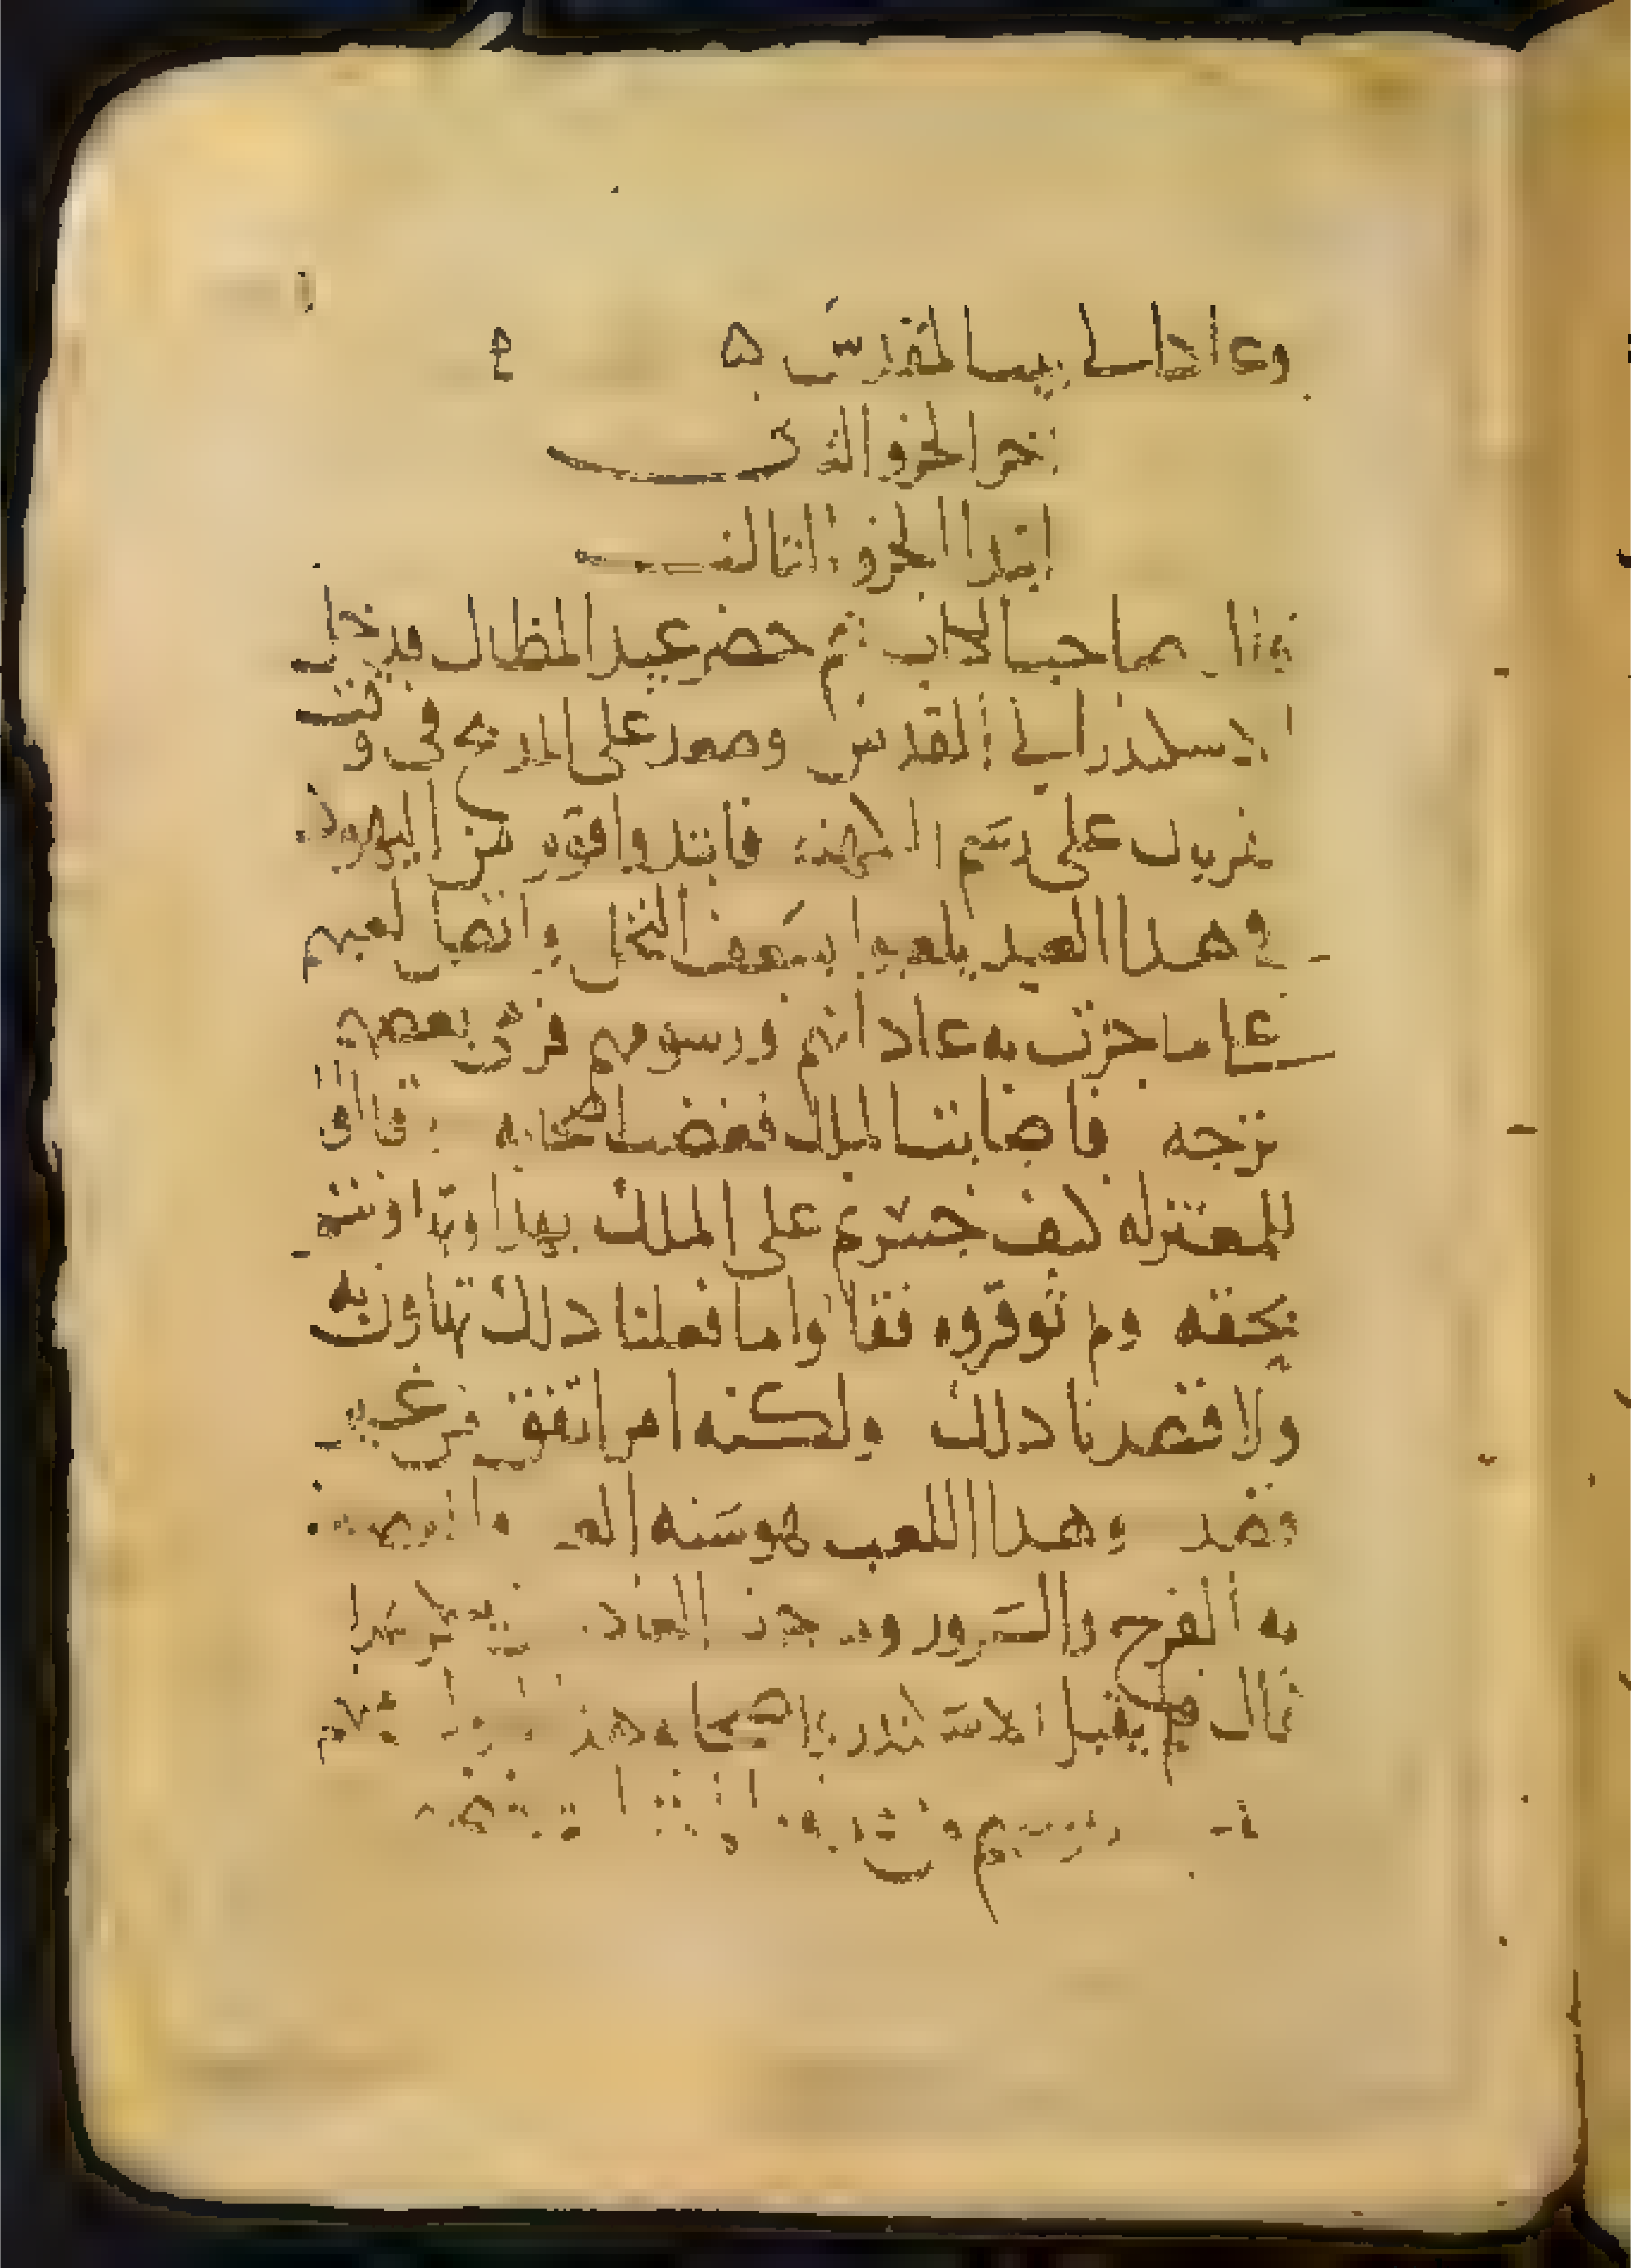 وعاد الى بيت المقدس
اخر الجزو الثاني
ابتدا الجزو الثالث
قال صاحب الكتاب ثم حضر عيد المظال فدخل
الاسكندر الي القدس وصعد على المدبح في وقت
على رسم الكهنه فابتدوا قوم من اليهود
في هدا العيد يلعبوا بسعف النخل واتصل لعبهم
على ما جرت به عاداتهم ورسومهم فرمى بعضهم
ترجه فاصابت الملك فغضب اصحابه فقالوا
للمعتزله كيف جسرتم على الملك بهدا
بحقه ولم توقروه فقالوا ما فعلنا دلك تهاون به
ولا قصدنا دلك ولكنه امر اتفق من غير
قصد وهدا اللعب هو سنه العيد
به الفرح والسرور وبه جرت العاده
قال فلم يقبل الاسكندر واصحابه هذا